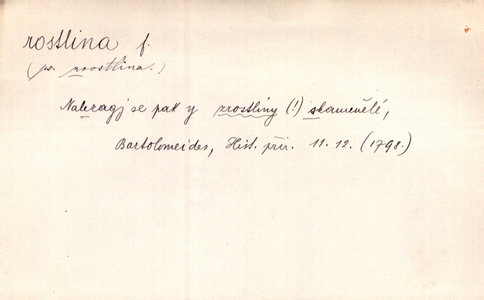 rostlina f.
(psr. zrostlina.)
Nalezagj se pak y zrostliny (!) skamenělé,
Bartolomeides, Hist. přir. 11.12. (1798.)